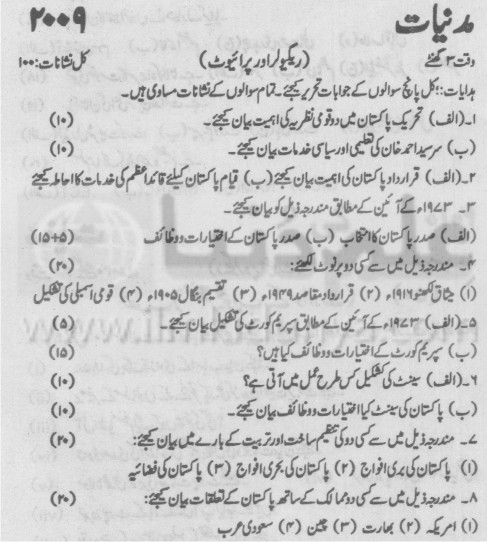 مدنیات ۲۰۰۹
وقت ۳ گھنٹے (ریگولر اور پرائیوٹ) کل نشانات: ۱۰۰
ہدایات: کل پانچ سوالوں کے جوابات تحریر کیجئے۔ تمام سوالوں کے نشانات مساوی ہیں۔
۱۔ (الف) تحریک پاکستان میں دو قومی نظریہ کی اہمیت بیان کیجئے۔ (۱۰)
(ب) سرسید احمد خان کی تعلیمی اور سیاسی خدمات بیان کیجئے۔ (۱۰)
۲۔ (الف) قرارداد پاکستان کی اہمیت بیان کیجئے (ب) قیام پاکستان کیلئے قائد اعظم کی خدمات کا احاطہ کیجئے
۳۔ ۱۹۷۳ء کے آئین کے مطابق مندرجہ ذیل کو بیان کیجئے۔
(الف) صدر پاکستان کا انتخاب (ب) صدر پاکستان کے اختیارات و وظائف (۵+۱۵)
۴۔ مندرجہ ذیل میں سے کسی دو پر نوٹ لکھئے: (۲۰)
(۱) میثاق لکھنو ۱۹۱۶ء (۲) قرارداد مقاصد ۱۹۴۹ء (۳) تقسیم بنگال ۱۹۰۵ء (۴) قومی اسمبلی کی تشکیل
۵۔ (الف) ۱۹۷۳ء کے آئین کے مطابق سپریم کورٹ کی تشکیل بیان کیجئے۔ (۵)
(ب) سپریم کورٹ کے اختیارات و وظائف کیا ہیں؟ (۱۵)
۶۔ (الف) سینٹ کی تشکیل کس طرح عمل میں آتی ہے؟ (۱۰)
(ب) پاکستان کی سینٹ کیا اختیارات و وظائف بیان کیجئے۔ (۱۰)
۷۔ مندرجہ ذیل میں سے کسی دو کی تنظیم ساخت اور تربیت کے بارے میں بیان کیجئے: (۲۰)
(۱) پاکستان کی بری افواج (۲) پاکستان کی بحری افواج (۳) پاکستان کی فضائیہ
۸۔ مندرجہ ذیل میں سے کسی دو ممالک کے ساتھ پاکستان کے تعلقات بیان کیجئے: (۲۰)
(۱) امریکہ (۲) بھارت (۳) چین (۴) سعودی عرب